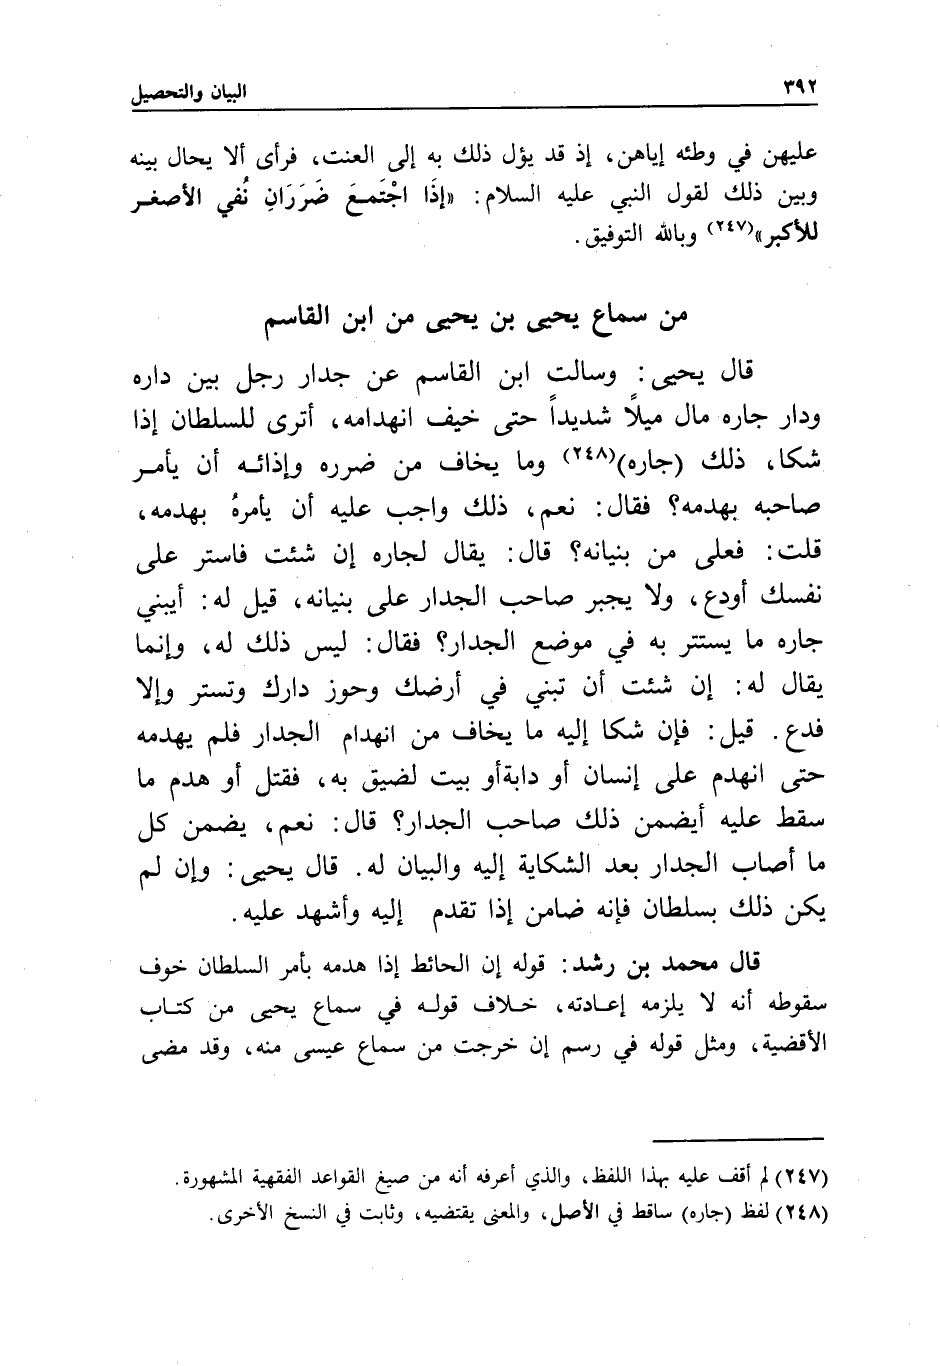 ٣٩٢ البيان والتحصيل
عليهن في وطئه إياهن، إذ قد يؤل ذلك به إلى العنت، فرأى ألا يحال بينه
وبين ذلك لقول النبي عليه السلام: «إذَا اجْتَمعَ ضَرَرَانِ نُفي الأصغر
للأكبر»(٢٤٧) وبالله التوفيق.
من سماع يحيى بن يحيى من ابن القاسم
قال يحيى: وسالت ابن القاسم عن جدار رجل بين داره
ودار جاره مال ميلاً شديداً حتى خيف انهدامه، أترى للسلطان إذا
شكا، ذلك (جاره)(٢٤٨) وما يخاف من ضرره وإذائه أن يأمر
صاحبه بهدمه؟ فقال: نعم، ذلك واجب عليه أن يأمرهُ بهدمه،
قلت: فعلى من بنيانه؟ قال: يقال لجاره إن شئت فاستر على
نفسك أودع، ولا يجبر صاحب الجدار على بنيانه، قيل له: أيبني
جاره ما يستتر به في موضع الجدار؟ فقال: ليس ذلك له، وإنما
يقال له: إن شئت أن تبني في أرضك وحوز دارك وتستر وإلا
فدع. قيل: فإن شكا إليه ما يخاف من انهدام الجدار فلم يهدمه
حتى انهدم على إنسان أو دابةأو بيت لضيق به، فقتل أو هدم ما
سقط عليه أيضمن ذلك صاحب الجدار؟ قال: نعم، يضمن كل
ما أصاب الجدار بعد الشكاية إليه والبيان له. قال يحيى: وإن لم
يكن ذلك بسلطان فإنه ضامن إذا تقدم إليه وأشهد عليه.
قال محمد بن رشد: قوله إن الحائط إذا هدمه بأمر السلطان خوف
سقوطه أنه لا يلزمه إعادته، خلاف قوله في سماع يحيى من كتاب
الأقضية، ومثل قوله في رسم إن خرجت من سماع عيسى منه، وقد مضى
(٢٤٧) لم أقف عليه بهذا اللفظ، والذي أعرفه أنه من صيغ القواعد الفقهية المشهورة.
(٢٤٨) لفظ (جاره) ساقط في الأصل، والمعنى يقتضيه، وثابت في النسخ الأخرى.